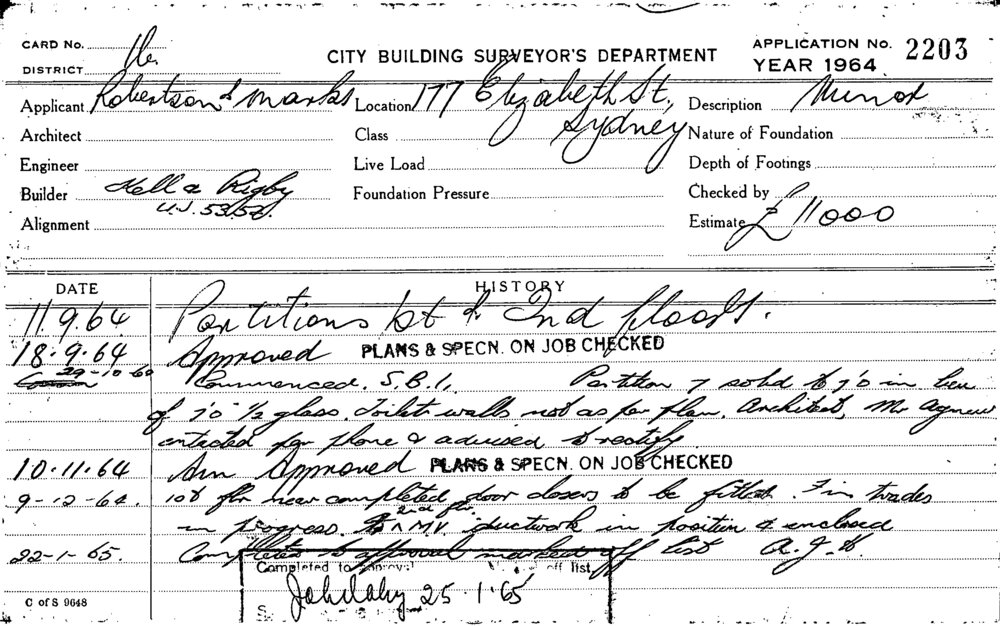 CARD No.
DISTRICT
CITY BUILDING SURVEYOR'S DEPARTMENT
APPLICATION No. 2203
YEAR 1964
Applicant Robertson & Marks
Location 177 Elizabeth St, Sydney
Description Minor
Architect
Class
Nature of Foundation
Engineer
Live Load
Depth of Footings
Builder Kell & Rigby
U.J. 5352.
Foundation Pressure
Checked by
Alignment
Estimate £11000
DATE
HISTORY
11.9.64 Partitions 1st & 2nd floors.
18.9.64 Approved PLANS & SPECN. ON JOB CHECKED
29-10-64 Commenced. S.B.I. Partition 7 solid to 7'0 in lieu
of 7'0 ½ glass. Toilet walls not as per plan. Architect, Mr Agnew
contacted per phone & advised to rectify
10.11.64 Am Approved PLANS & SPECN. ON JOB CHECKED
9-12-64. 1st flr near completed door closers to be fitted. Fin trades
in progress. 2nd flr M.V. ductwork in position & enclosed
22-1-65. Completed to approval marked off list
Completed to approval off list
25.1.65
S.
C of S 9648